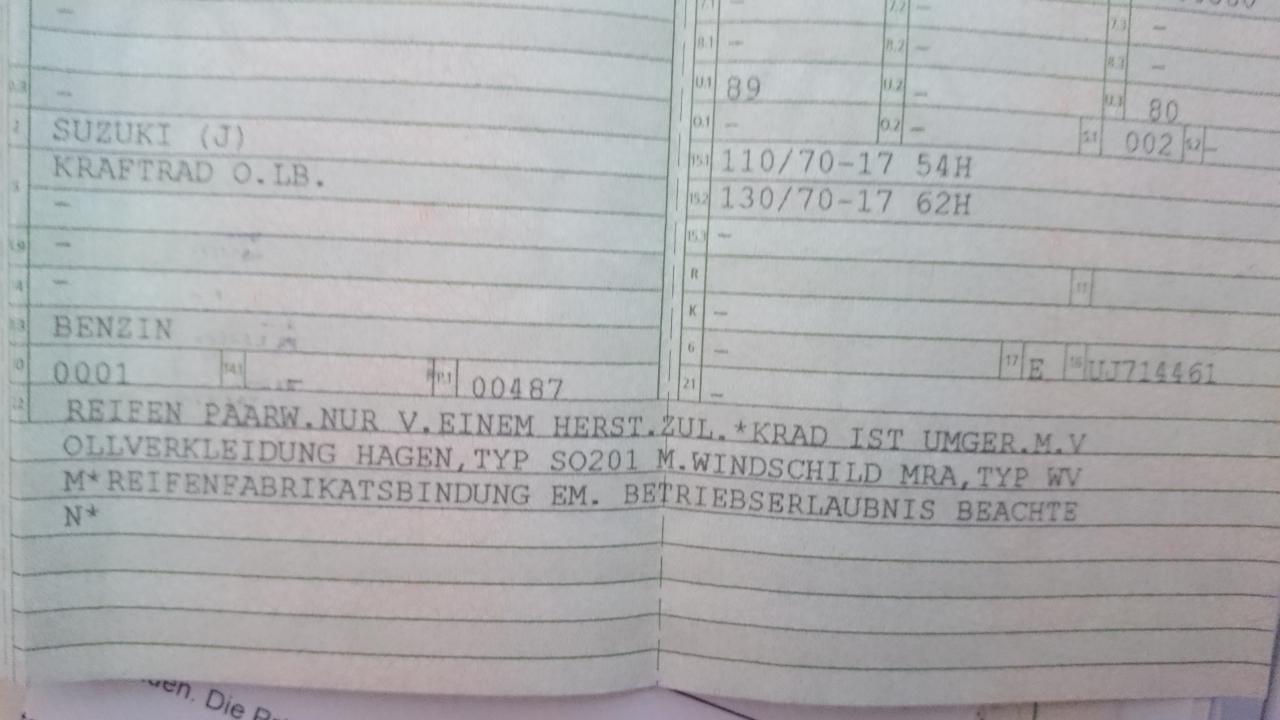 7.1 – 7.2 – 7.3 –
8.1 – 8.2 – 8.3 –
– U.1 89 U.2 – U.3 80
2 SUZUKI (J) O.1 – O.2 – S.1 002 S.2 –
5 KRAFTRAD O.LB. 15.1 110/70-17 54H
– 15.2 130/70-17 62H
– 15.3 –
– R 11
BENZIN K –
0001 14.1 – P.1 00487 6 – 17 E 16 UJ714461
21 –
22 REIFEN PAARW.NUR V.EINEM HERST.ZUL.*KRAD IST UMGER.M.V
OLLVERKLEIDUNG HAGEN,TYP SO201 M.WINDSCHILD MRA,TYP WV
M*REIFENFABRIKATSBINDUNG EM. BETRIEBSERLAUBNIS BEACHTE
N*
Die